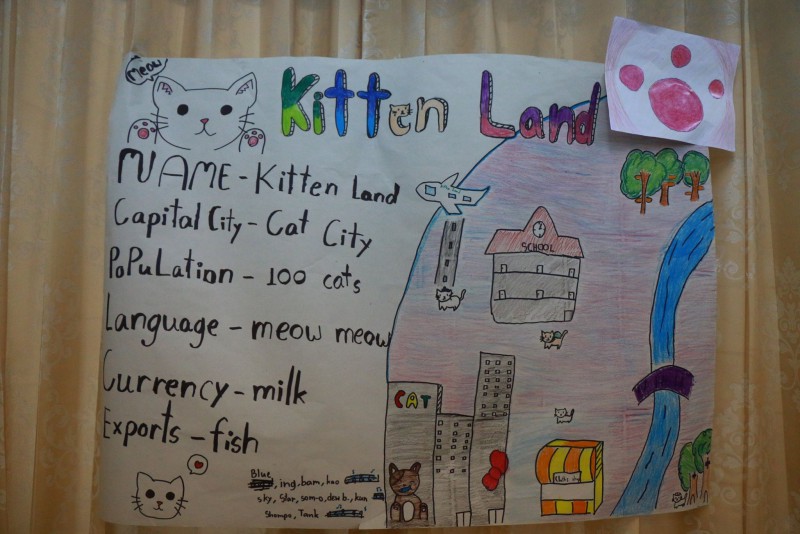 Meow
Kitten Land
NAME - Kitten Land
Capital City - Cat City
PoPuLation - 100 cats
Language - meow meow
Currency - milk
Exports - fish
SCHOOL
CAT
Blue
, ing, bam, kao
sky, Star, som-o, dew b, kan
Shampo, Tank